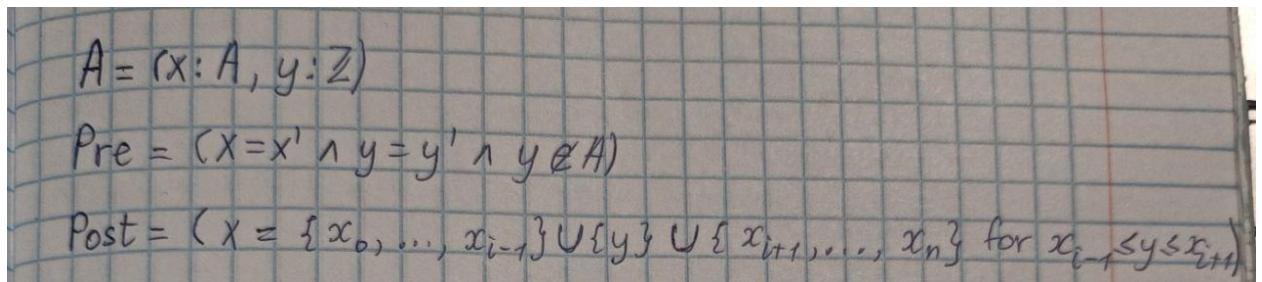 A = (x: A, y: ℤ)
Pre = (x=x' ∧ y=y' ∧ y∉A)
Post = (x = {x₀, ..., xᵢ₋₁}∪{y} ∪ {xᵢ₊₁, ..., xₙ} for xᵢ₋₁≤y≤xᵢ₊₁)